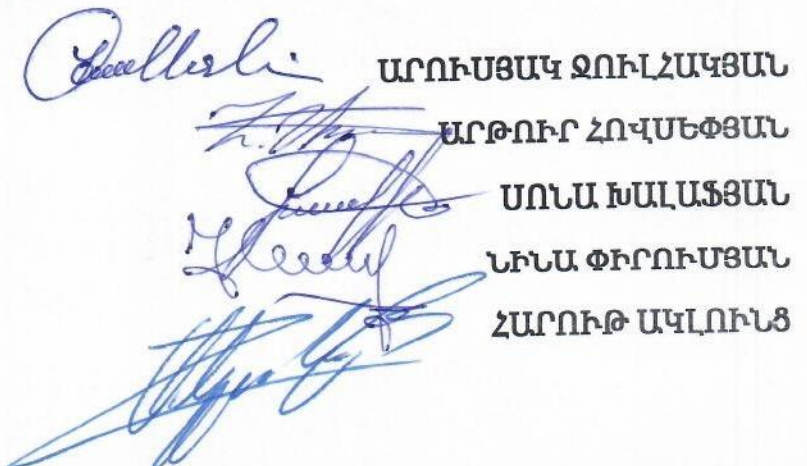 ԱՐՈՒՍՅԱԿ ՋՈՒԼՀԱԿՅԱՆ
ԱՐԹՈՒՐ ՀՈՎՍԵՓՅԱՆ
ՍՈՆԱ ԽԱԼԱՖՅԱՆ
ՆԻՆԱ ՓԻՐՈՒՄՅԱՆ
ՀԱՐՈՒԹ ԱԿԼՈՒՆՑ